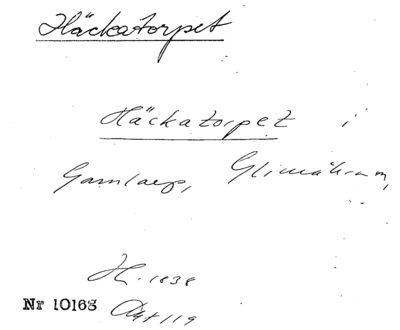 Häckatorpet
Häckatorpet i
Gamlarp, Glimåkra m,
H. 1838
Nr 10163 Akt 119